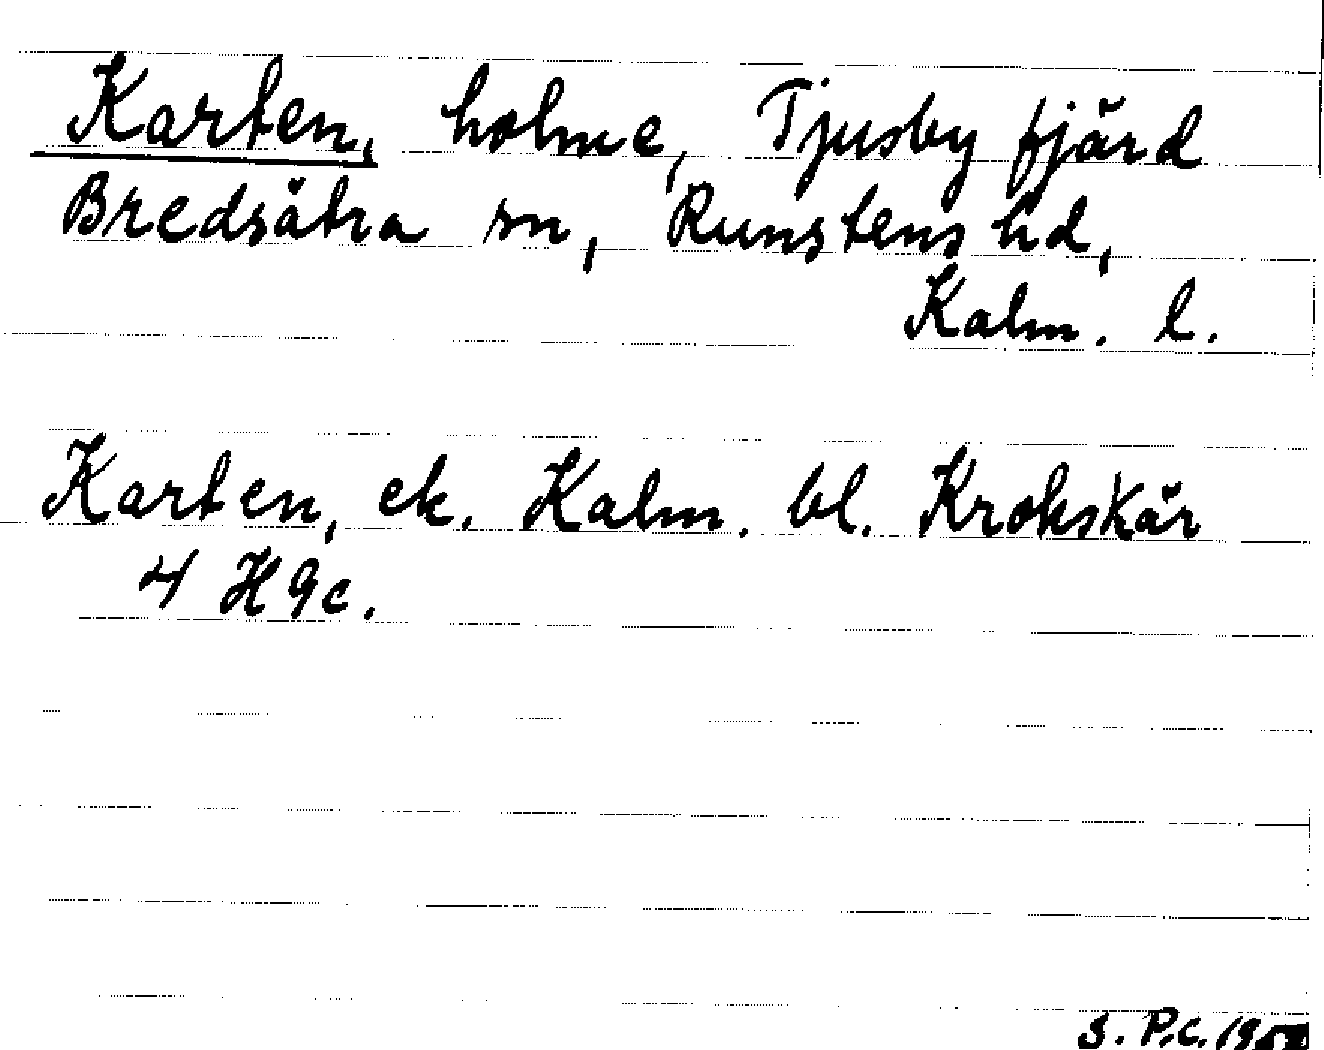 Karten, holme, Tjusby fjärd
Bredsätra sn, Runstens hd,
Kalm. l.
Karten, ek. Kalm. bl. Krokskär
4 H 9c.
S. P.C.